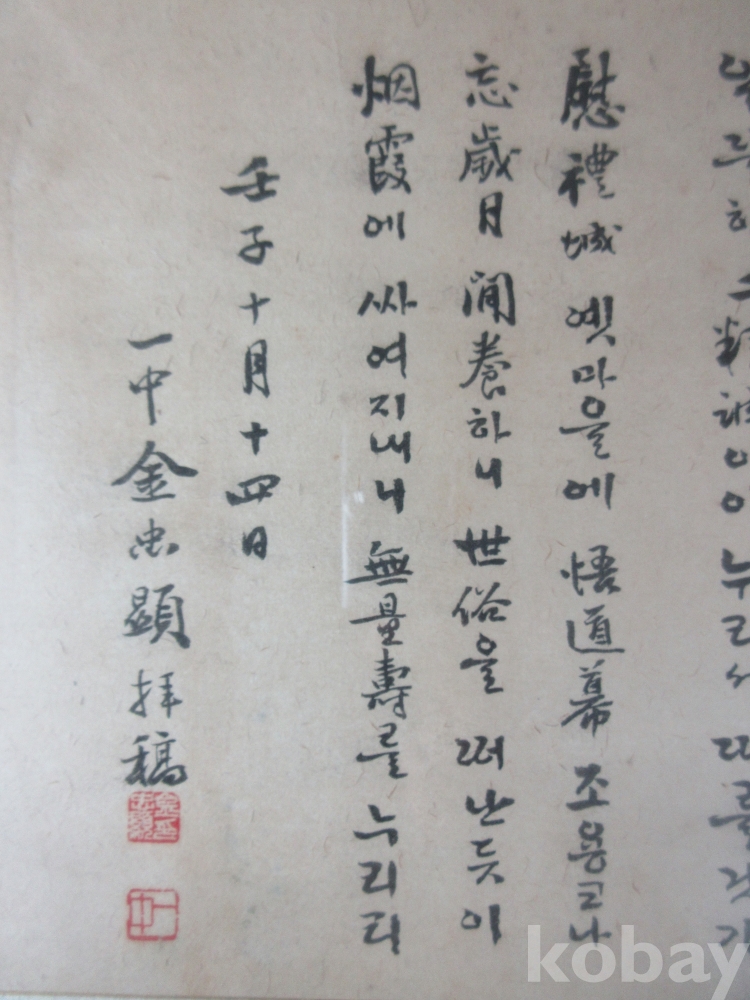 慰禮城 옛마을에 悟道幕 조용코나
忘歲月 閒養하니 世俗을 떠난듯이
烟霞에 싸여지내니 無量壽를 누리리
壬子十月十四日
一中金忠顯拜稿
一中
kobay